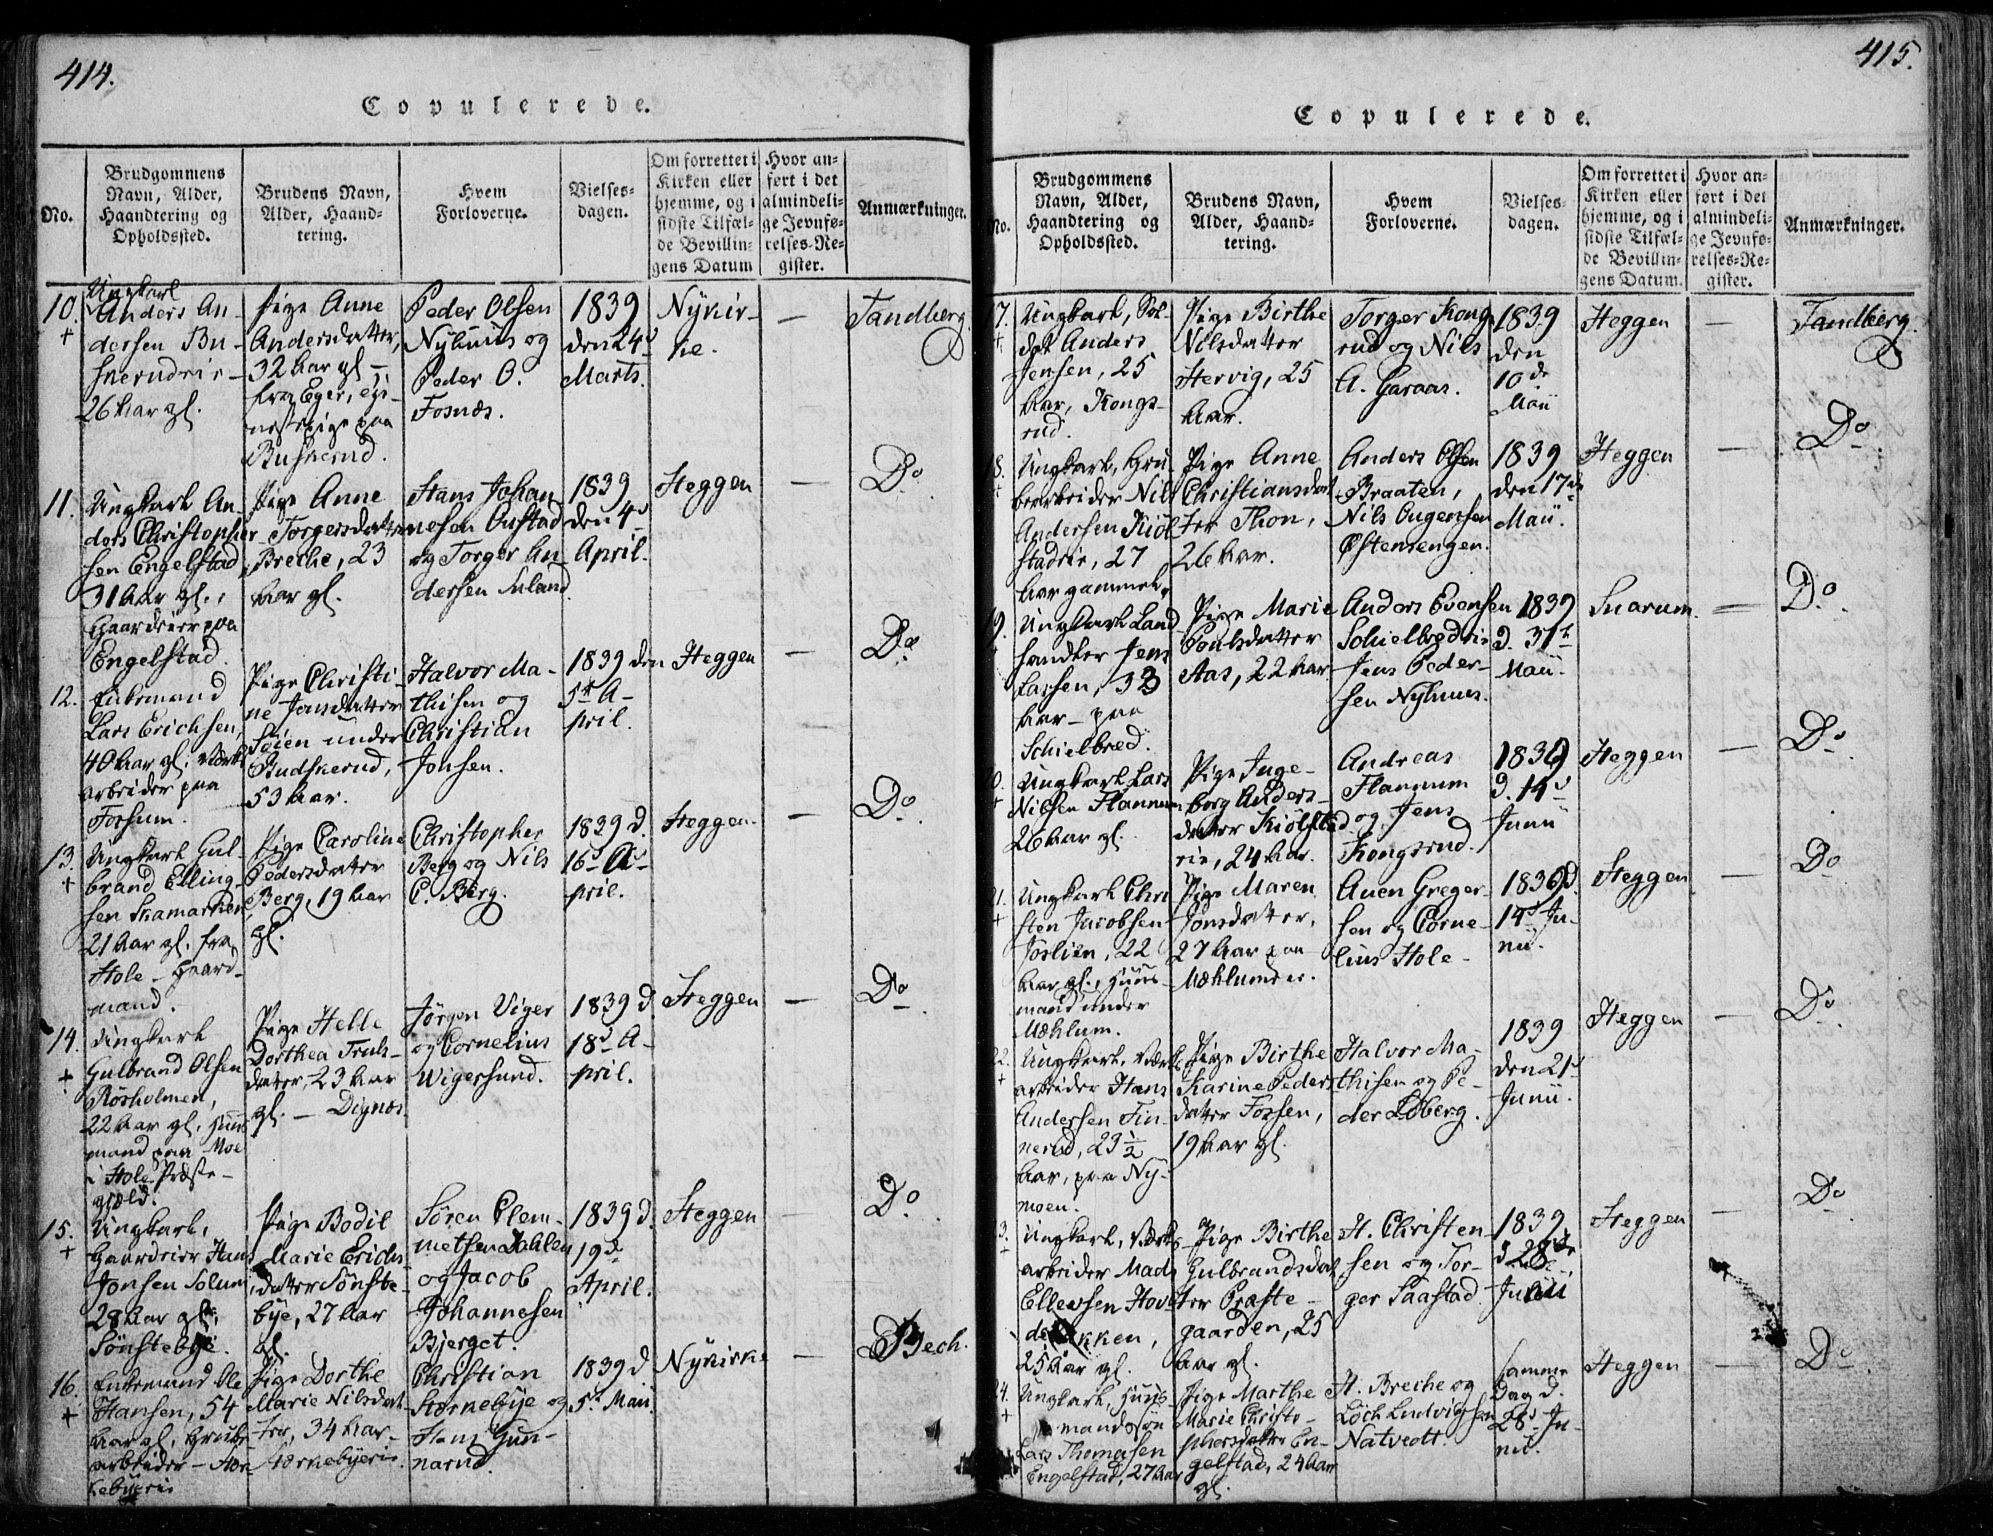 414.
Copulerede.
No.
Brudgommens
Navn, Alder,
Haandtering og
Opholdssted.
Brudens Navn,
Alder, Haand-
tering.
Hvem
Forloverne.
Vielses-
dagen.
Om forrettet i
Kirken eller
hjemme, og i
sidste Tilfæl-
de Bevillin-
gens Datum
Hvor an-
ført i det
almindeli-
ge Jevnfø-
relses-Re-
gister.
Anmærkninger.
10.
+
Ungkarl
Anders An-
dersen Bu-
skerudeie
26 Aar gl.
Pige Anne
Andersdatter,
32 Aar gl –
fra Eger,
paa
Buskerud.
Peder Olsen
Nyhuus og
Peder O.
Fosnæs.
1839
den 24d
Marts.
Nykir-
ke.
—
Tandberg.
11.
Ungkarl An-
ders Christopher
sen Engelstad
31 Aar gl.,
Gaardeier paa
Engelstad.
Pige Anne
Torgersdatter
Breche, 23
Aar gl.
Hans Johan
nesen Onstad
og Torger An
dersen
1839
den 4d
April.
Heggen
—
Do
12.
Enkemand
Lars Erichsen,
40 Aar gl. Værks
arbeider paa
Fossum.
Pige Christi-
ne Jonsdatter
Søien under
Budskerud,
53 Aar.
Halvor Ma-
thisen og
Christian
Jonsen.
1839 den
5te A-
pril.
Heggen
—
Do
13.
+
Ungkarl Gul-
brand Elling-
sen Skamarken
21 Aar gl. fra
Hole – Gaard-
mand.
Pige Caroline
Pedersdatter
Berg, 19 Aar
gl.
Christopher
Berg og Nils
C. Berg.
1839 d.
16d A-
pril.
Heggen.
—
Do
14.
+
Ungkarl
Gulbrand Olsen
Røsholmen,
22 Aar gl. Huus
mand paa Moe
i Hole Præste-
gjæld.
Pige Helle
Dorthea Truls-
datter, 23 Aar
gl. – Dignæs
Jørgen Viger
og Cornelius
Wigersund.
1839 d
18d A-
pril.
Heggen
—
Do
15.
+
Ungkarl,
Gaardeier Hans
Jonsen Solum
28 Aar gl.
Sønstebye.
Pige Bodil
Marie Erichs
datter Sønste-
bye, 27 Aar
gl.
Søren Clem-
metsen Dahlen
og Jacob
Johannesen
Bjerget.
1839 d.
19de
April.
Heggen
Do
16.
+
Enkemand Ole
Hansen, 54
Aar gl, Grube
arbeider –
Pige Dorthe
Marie Nilsdat-
ter, 34 Aar –
Christian
Stornebye og
Hans Gun-
narud.
1839 d.
5te Maii.
Nykirke
—
Bech.
415.
Copulerede.
No.
Brudgommens
Navn, Alder,
Haandtering og
Opholdssted.
Brudens Navn,
Alder, Haand-
tering.
Hvem
Forloverne.
Vielses-
dagen.
Om forrettet i
Kirken eller
hjemme, og i
sidste Tilfæl-
de Bevillin-
gens Datum.
Hvor an-
ført i det
almindeli-
ge Jevnfø-
relses-Re-
gister.
Anmærkninger.
17.
+
Ungkarl, Sol-
dat Anders
Jensen, 25
Aar, Kongs-
rud.
Pige Birthe
Nilsdatter
Hervig, 25
Aar.
Torger Kongs
rud og Nils
A. Garaas.
1839
den
10de
Maii
Heggen
—
Tandberg.
18.
+
Ungkarl, Gru
bearbeider Nils
Andersen Kiøl
stadeie, 27
Aar gammel.
Pige Anne
Christiansdat
ter Thon,
26 Aar.
Anders Olsen
Braaten,
Nils Ougensen
Østensengen.
1839
den 17de
Maii.
Heggen
—
Do
19.
Ungkarl Land
handler Jens
Larsen, 33
Aar – paa
Schielbred.
Pige Marie
Poulsdatter
Aas, 22 Aar
Anders Evensen
Schielbredeie
Jens Peder-
sen Nyhuus.
1839
d. 31te
Maii.
Snarum
—
Do
20.
+
Ungkarl Lars
Nilsen Flannum
26 Aar gl.
Pige Inge-
borg Anders-
datter Kiølstad
eie, 24 Aar.
Andreas
Flannum
og Jens
Kongsrud.
1839
d. 14d
Junii
Heggen
—
Do
21.
+
Ungkarl Chri
sten Jacobsen
22
Aar gl., Huus
mand under
Mæhlum.
Pige Maren
Jonsdatter,
27 Aar paa
Mæhlumseie.
Auen Greger-
sen og Corne-
lius Hole –
1839 d.
14d Ju-
nii.
Heggen
—
Do
22.
+
Ungkarl, Værks
arbeider Hans
Andersen Fin-
nerud, 23 ½
Aar, paa Ny-
moen.
Pige Birthe
Karine Peders
datter Fossen,
19 Aar gl.
Halvor Ma-
thisen og Pe-
der Loberg.
1839
den 21d
Junii.
Heggen
—
Do
23.
+
Ungkarl, Værks
arbeider Mads
Ellevsen Hov
25 Aar gl.
Pige Birthe
Gulbrandsdat
ter Præste-
gaarden, 25
Aar gl.
H. Christen
sen og Tor-
ger Saastad.
1839
d. 28de
Junii
Heggen
—
Do
24.
+
Ungkarl, Huus
mandssøn
Lars Thomesen
Engelstad, 27 Aar
Pige Marthe
Marie Christo-
phersdatter En-
gelstad, 24 Aar
gl.
H. Breche og
Ludvigsen
Natvedt.
samme
Dag d.
28d Ju-
nii.
Heggen
—
Do